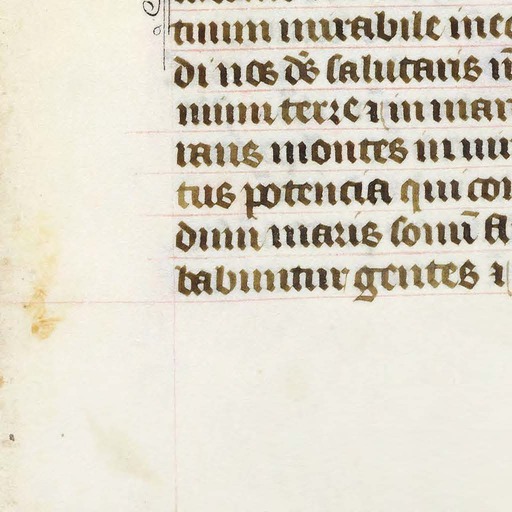 tuum mirabile in eq
di nos ds̄ salutaris n̄
nium terre ⁊ in mari
rans montes in uir
tus potencia qui con
dum maris sonū
babuntur gentes ⁊